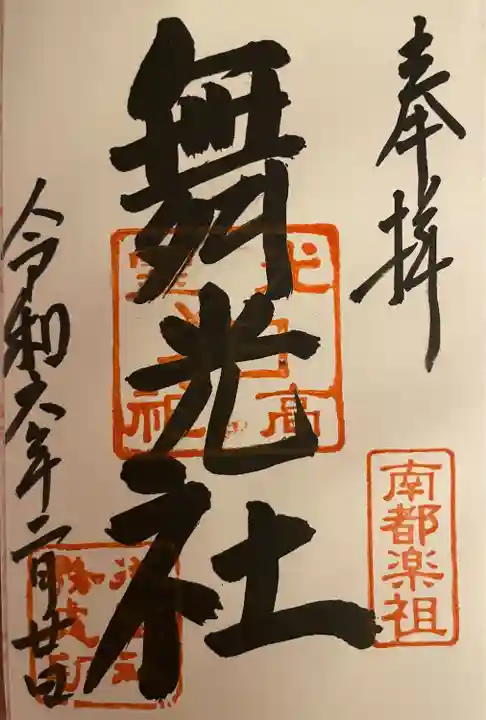 奉拝
南都楽祖
舞光社
令和六年二月廿日